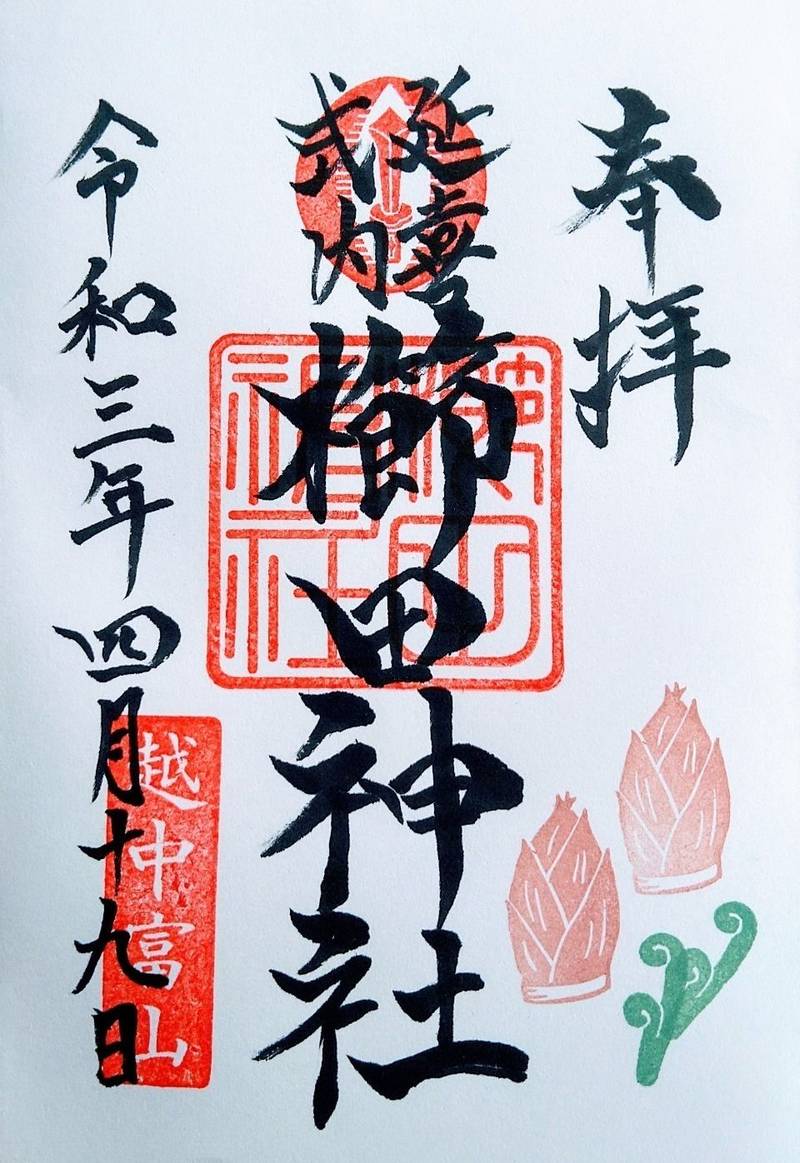 奉拝
延喜
式内
櫛田神社
櫛田
神社
令和三年四月十九日
越中富山